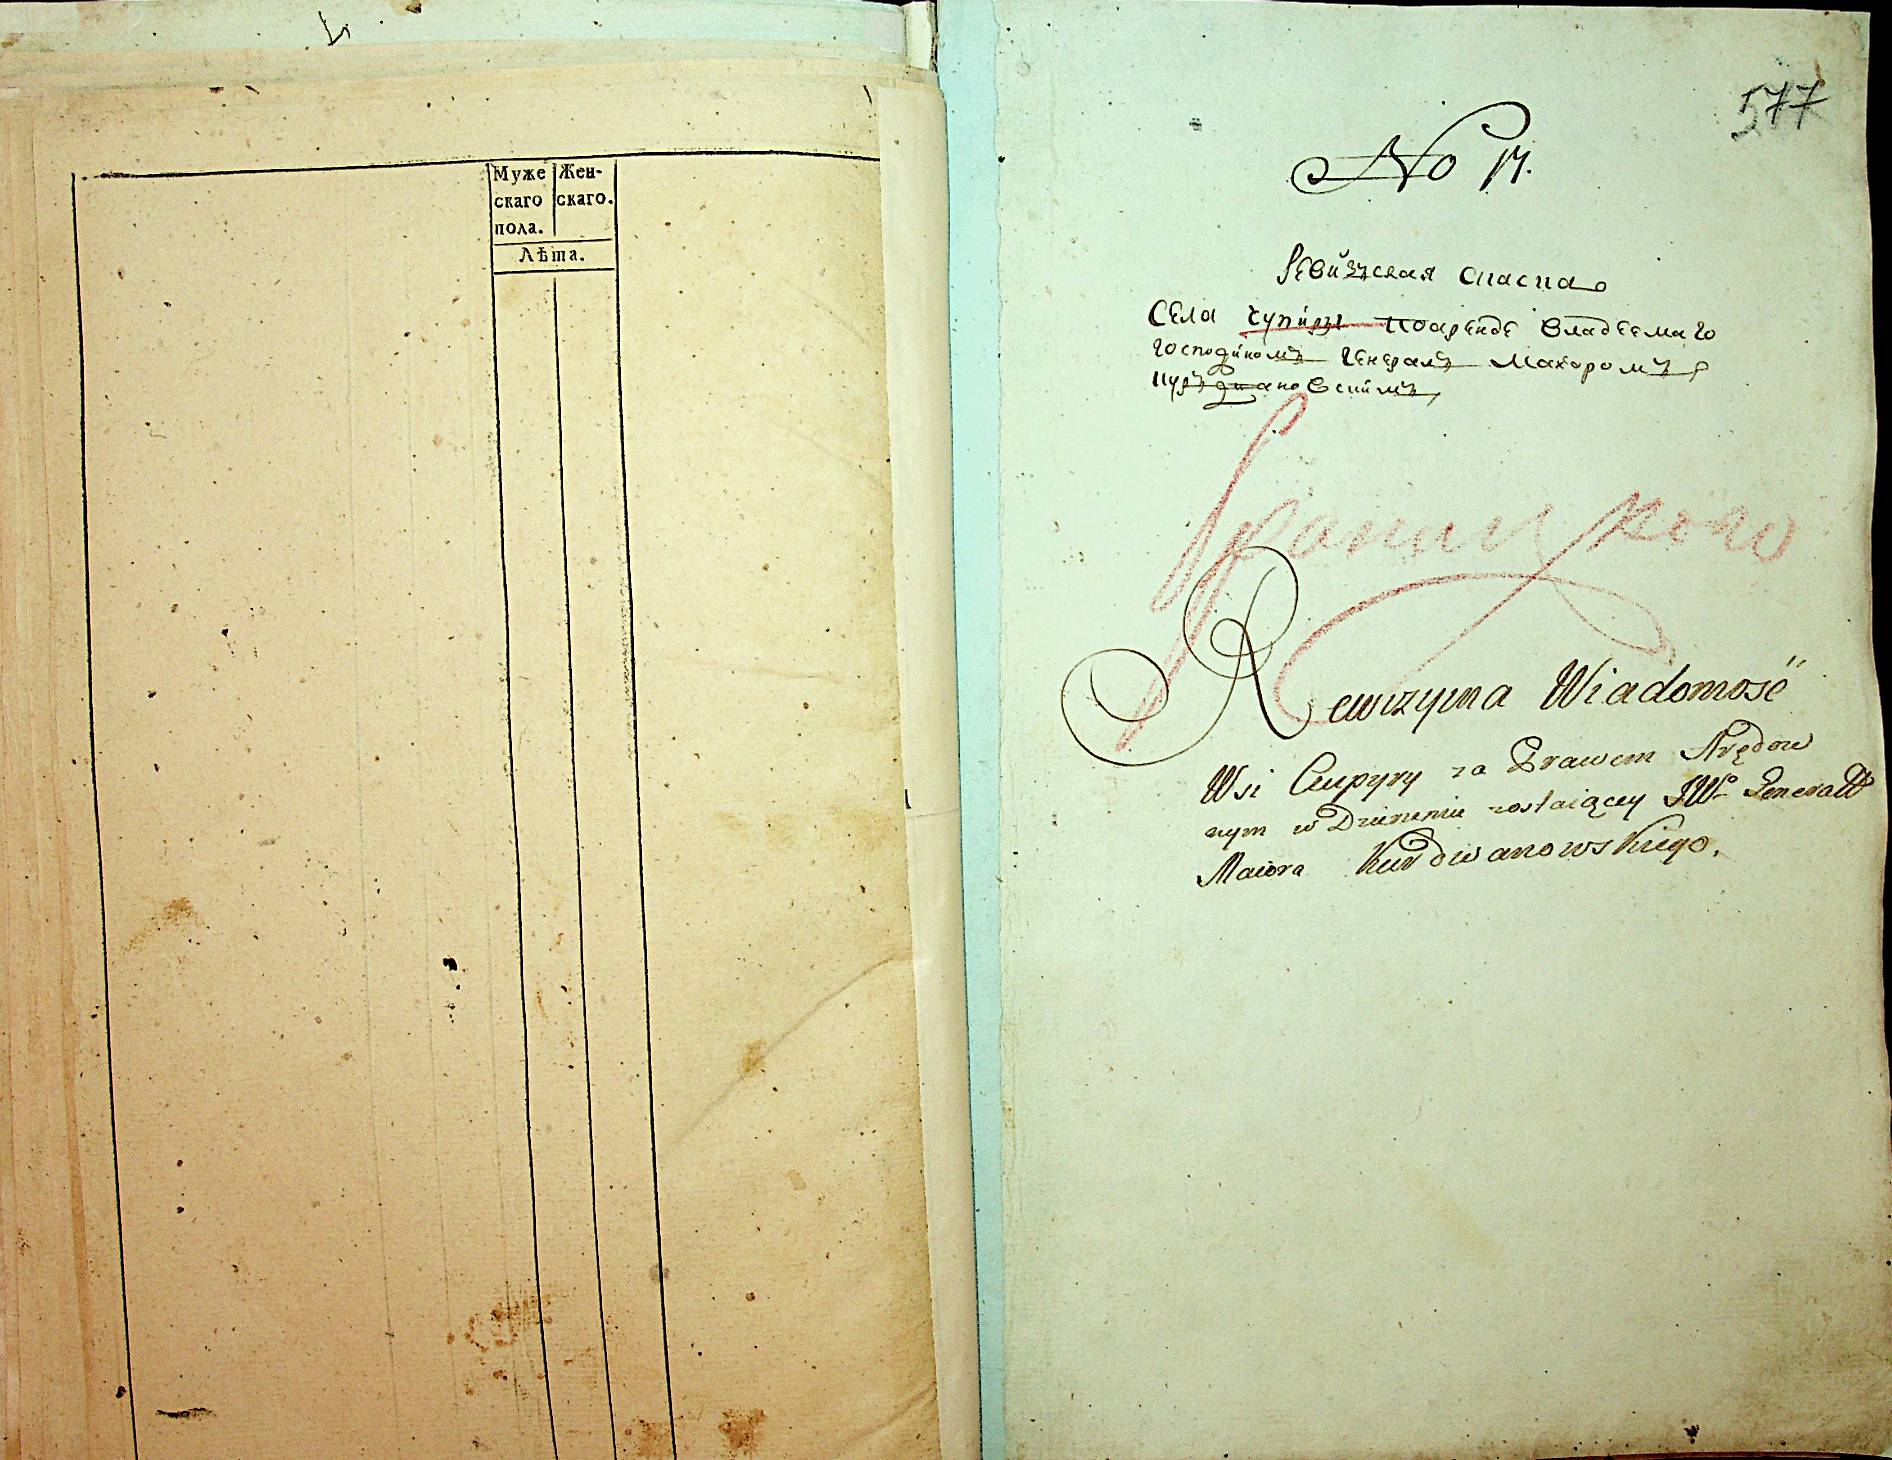 Муже
скаго
пола.
Жен-
скаго.
Лѣта.
577
No 17.
Ревизская Сказка
Села Чупиры поаренде владеемаго
Господиномъ Генералъ Маиоромъ
Курдвановскимъ
Браницкого
Rewizyina Wiadomość
Wsi Czupyry za Prawem Arędow
nym w Dzierzeniu zostaiącey JWo Generałł
Maiora Kurdwanowskiego.